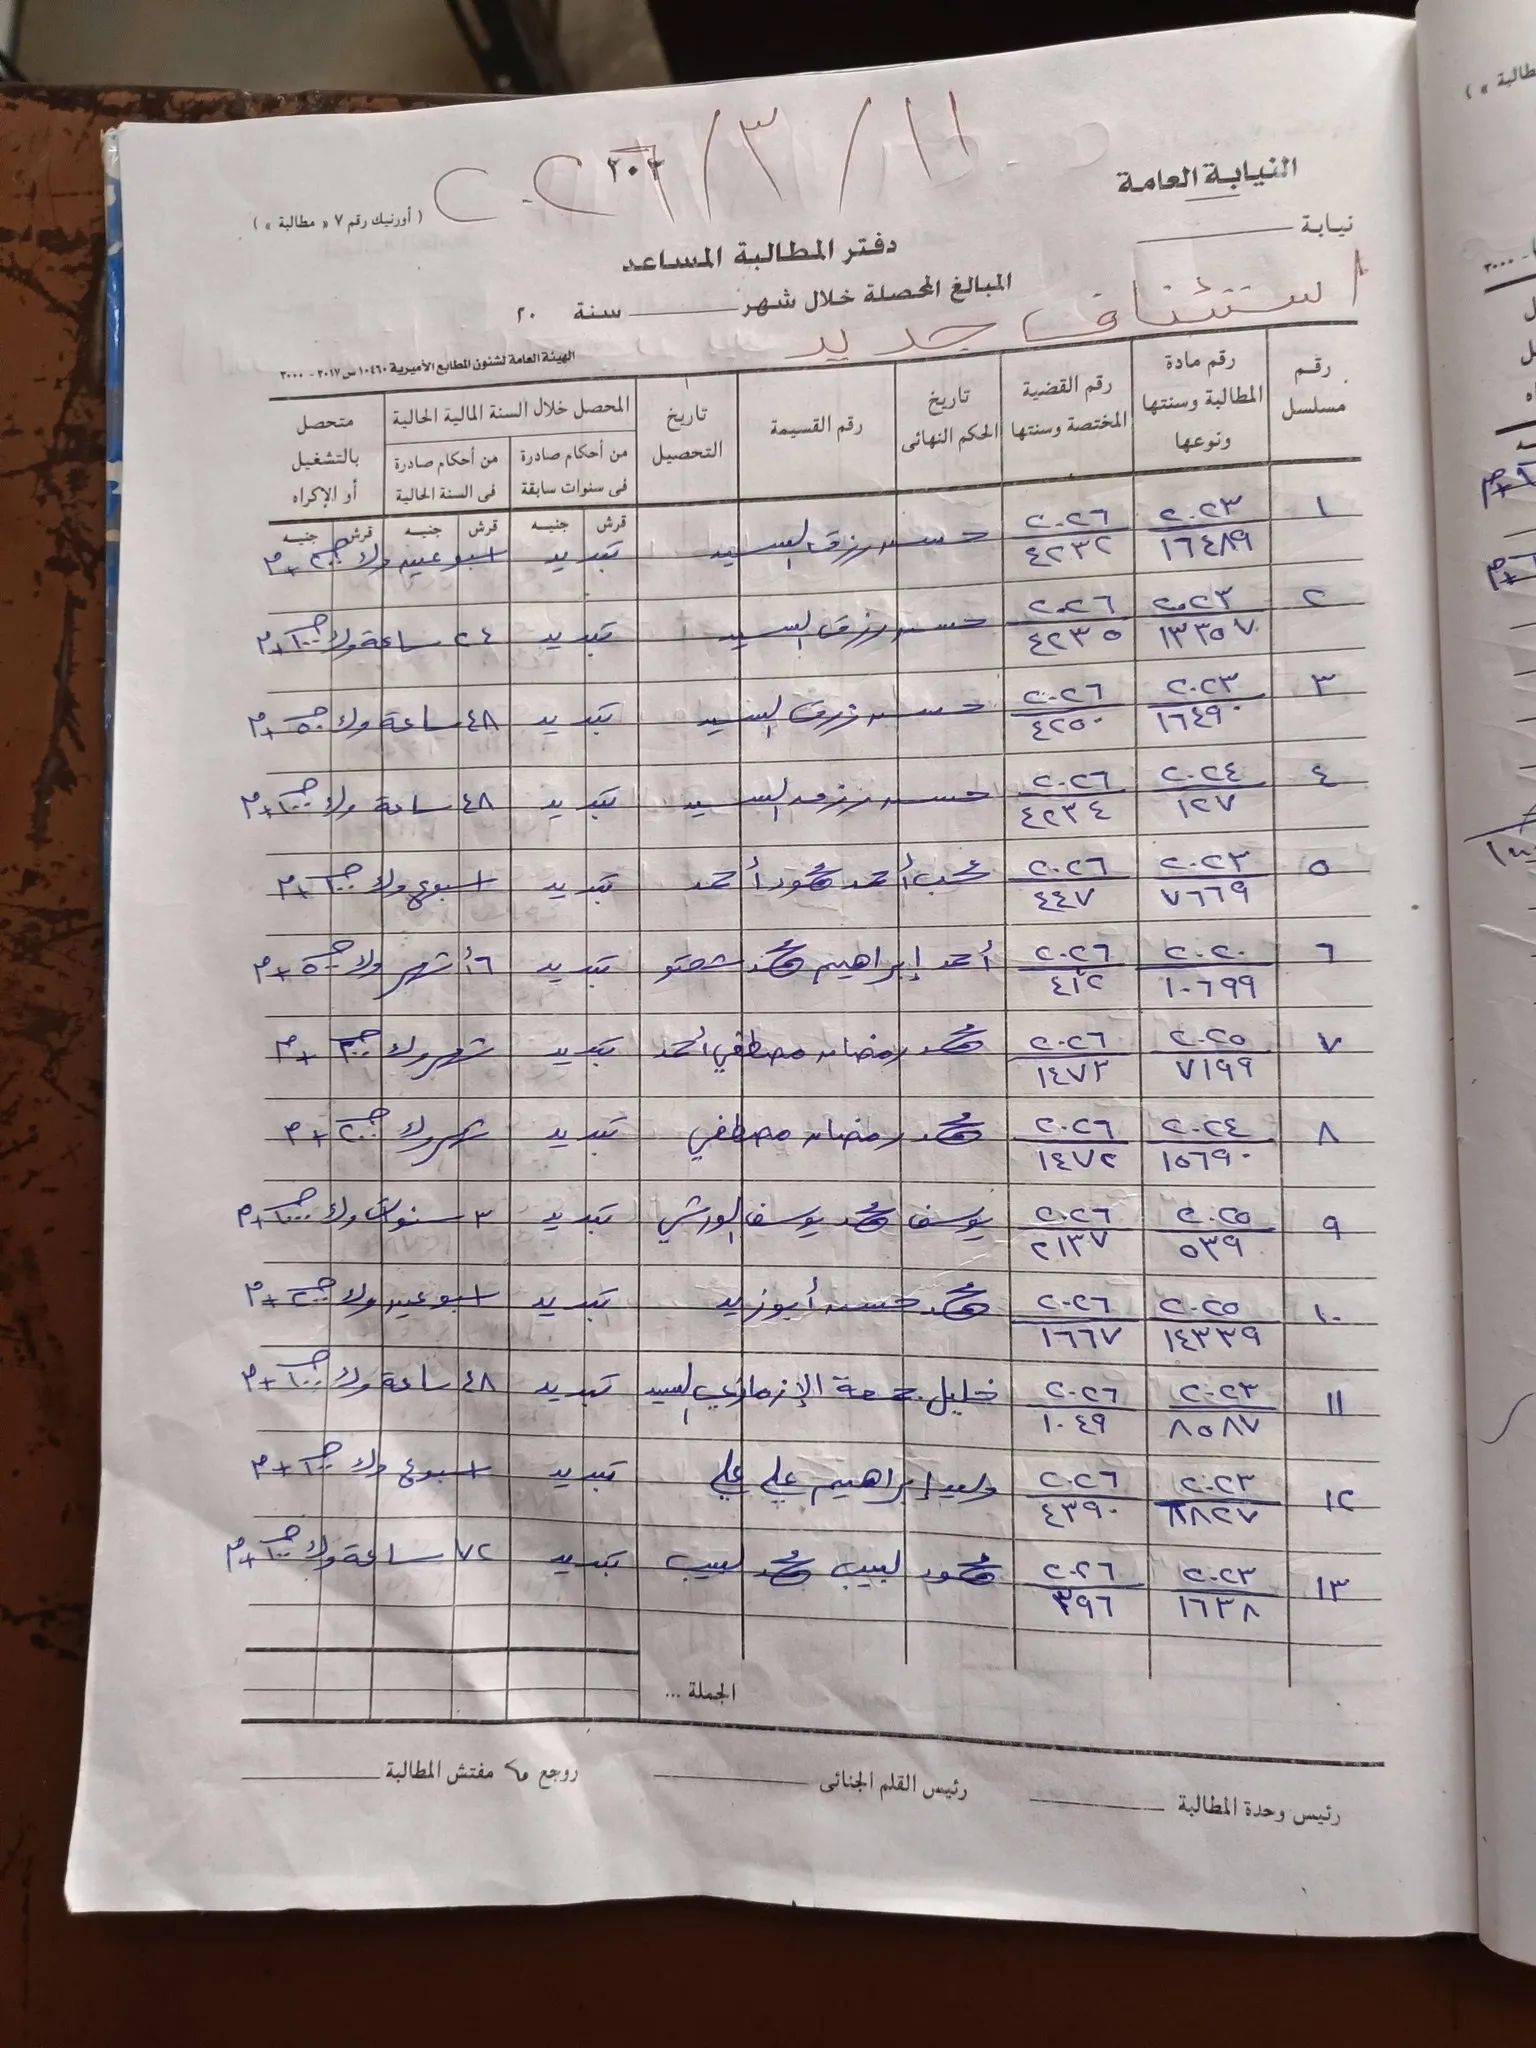 ١١ / ٣ / ٢٠٢٦
النيابة العامة
٢٠٢
نيابة
( أورنيك رقم ٧ « مطالبة » )
دفتر المطالبة المساعد
المبالغ المحصلة خلال شهر سنة ٢٠
استئناف جديد
الهيئة العامة لشئون المطابع الأميرية ١٠٤٦٠ س ٢٠١٧ - ٣٠٠٠
رقم مسلسل
رقم مادة المطالبة وسنتها ونوعها
رقم القضية المختصة وسنتها
تاريخ الحكم النهائى
رقم القسيمة
تاريخ التحصيل
المحصل خلال السنة المالية الحالية
من أحكام صادرة فى سنوات سابقة
من أحكام صادرة فى السنة الحالية
متحصل بالتشغيل أو الإكراه
قرش جنيه قرش جنيه قرش جنيه
١ ٢٠٢٣/١٦٤٨٩ ٢٠٢٦/٤٢٣٢ حسن رزق السيد تبديد اسبوعين وك ٢٠٠ جـ + م
٢ ٢٠٢٣/١٣٣٥٧ ٢٠٢٦/٤٢٣٥ حسن رزق السيد تبديد ٢٤ ساعة وك ١٠٠ جـ + م
٣ ٢٠٢٣/١٦٤٩٠ ٢٠٢٦/٤٢٥٠ حسن رزق السيد تبديد ٤٨ ساعة وك ٥٠ جـ + م
٤ ٢٠٢٤/١٢٧ ٢٠٢٦/٤٢٣٤ حسن رزق السيد تبديد ٤٨ ساعة وك ١٠٠ جـ + م
٥ ٢٠٢٣/٧٦٦٩ ٢٠٢٦/٤٤٧ محب أحمد محمود أحمد تبديد اسبوع وك ١٠٠ جـ + م
٦ ٢٠٢٠/١٠٦٩٩ ٢٠٢٦/٤١٢ أحمد إبراهيم محمد تبديد ٦ أشهر وك ٥٠٠ جـ + م
٧ ٢٠٢٥/٧١٩٩ ٢٠٢٦/١٤٧٣ محمد رمضان مصطفي أحمد تبديد شهر وك ٣٠٠ جـ + م
٨ ٢٠٢٤/١٥٦٩٠ ٢٠٢٦/١٤٧٢ محمد رمضان مصطفي تبديد شهر وك ٢٠٠ جـ + م
٩ ٢٠٢٥/٥٣٩ ٢٠٢٦/٢١٣٧ يوسف محمد يوسف الورشي تبديد ٣ سنوات وك ١٠٠٠ جـ + م
١٠ ٢٠٢٥/١٤٣٣٩ ٢٠٢٦/١٦٦٧ محمد حسن أبوزيد تبديد اسبوعين وك ٢٠٠ جـ + م
١١ ٢٠٢٣/٨٥٨٧ ٢٠٢٦/١٠٤٩ خليل جمعة السيد تبديد ٤٨ ساعة وك ١٠٠ جـ + م
١٢ ٢٠٢٣ ٢٠٢٦/٤٣٩٠ وليد إبراهيم علي علي تبديد اسبوع وك ١٠٠ جـ + م
١٣ ٢٠٢٣/١٦٣٨ ٢٠٢٦/٣٩٦ محمود لبيب محمد لبيب تبديد ٧٢ ساعة وك ١٠٠ جـ + م
الجملة ...
رئيس وحدة المطالبة
رئيس القلم الجنائى
روجع مفتش المطالبة